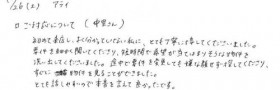 1/26(土) アライ
□ ご対応について (中里さん)
初めて来店し、よく分かっていない私に、とても丁寧に接してくださいました。
条件を細かく聞いてくださり、短時間で希望が当てはまりそうな物件を
洗い出してくださいました。途中で条件を変更しても嫌な顔せず探してくださり、
すぐに物件を見ることができました。
とても話しやすくて本音を言えて良かったです。